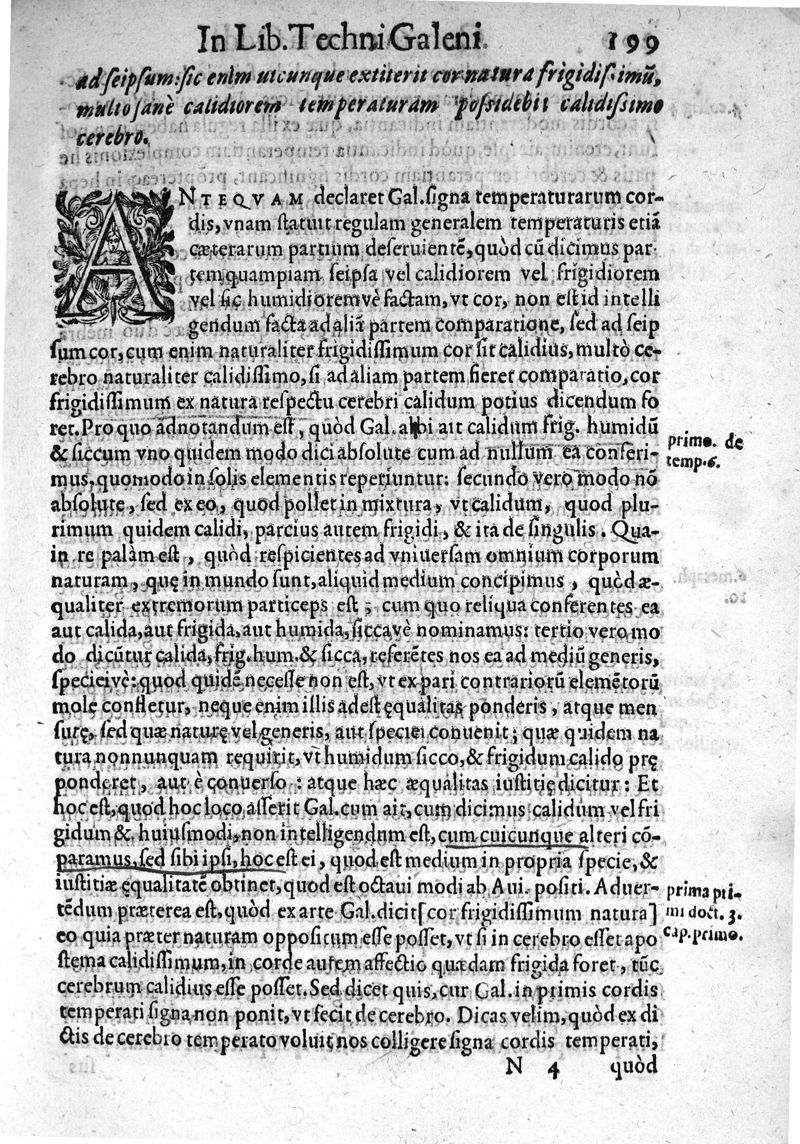 In Lib. Techni Galeni. 199
ad seipsum: sic enim utcunque extiterit cor natura frigidissimũ,
multo sanè calidiorem temperaturam possidebit calidissimo
cerebro.
ANTEQVAM declaret Gal. signa temperaturarum cor-
dis, vnam statuit regulam generalem temperaturis etiã
cæterarum partium deseruientẽ, quòd cũ dicimus par
tem quampiam seipsa vel calidiorem vel frigidiorem
vel sic humidioremvè factam, vt cor, non est id intelli
gendum facta ad aliã partem comparatione, sed ad seip
sum cor, cum enim naturaliter frigidissimum cor sit calidius, multò ce-
rebro naturaliter calidissimo, si ad aliam partem fieret comparatio, cor
frigidissimum ex natura respectu cerebri calidum potius dicendum fo
ret. Pro quo adnotandum est, quòd Gal. alibi ait calidum frig. humidũ
& siccum vno quidem modo dici absolute cum ad nullum ea conferi-
mus, quomodo in solis elementis reperiuntur: secundo vero modo nõ
absolute, sed ex eo, quod pollet in mixtura, vt calidum, quod plu-
rimum quidem calidi, parcius autem frigidi, & ita de singulis. Qua-
in re palàm est, quòd respicientes ad vniuersam omnium corporum
naturam, quę in mundo sunt, aliquid medium concipimus, quòd æ-
qualiter extremorum particeps est; cum quo reliqua conferentes ea
aut calida, aut frigida, aut humida, siccavè nominamus: tertio vero mo
do dicũtur calida, frig. hum. & sicca, referẽtes nos ea ad mediũ generis,
specieivè: quod quidẽ necesse non est, vt ex pari contrariorũ elemẽtorũ
mole confletur, neque enim illis adest ęqualitas ponderis, atque men
surę, sed quæ naturę vel generis, aut speciei conuenit; quæ quidem na
tura nonnunquam requirit, vt humidum sicco, & frigidum calido prę
ponderet, aut è conuerso: atque hæc æqualitas iustitię dicitur: Et
hoc est, quod hoc loco asserit Gal. cum ait, cum dicimus calidum vel fri
gidum & huiusmodi, non intelligendum est, cum cuicunque alteri cõ-
paramus, sed sibi ipsi, hoc est ei, quod est medium in propria specie, &
iustitiæ ęqualitatẽ obtinet, quod est octaui modi ab Aui. positi. Aduer-
tẽdum præterea est, quòd ex arte Gal. dicit [cor frigidissimum natura]
eo quia præter naturam oppositum esse posset, vt si in cerebro esset apo
stema calidissimum, in corde autem affectio quædam frigida foret, tũc
cerebrum calidius esse posset. Sed dicet quis, cur Gal. in primis cordis
temperati signa non ponit, vt fecit de cerebro. Dicas velim, quòd ex di
ctis de cerebro temperato voluit nos colligere signa cordis temperati,
N 4 quòd
primo. de
temp. 6.
prima pri-
mi doct. 3.
cap. primo.